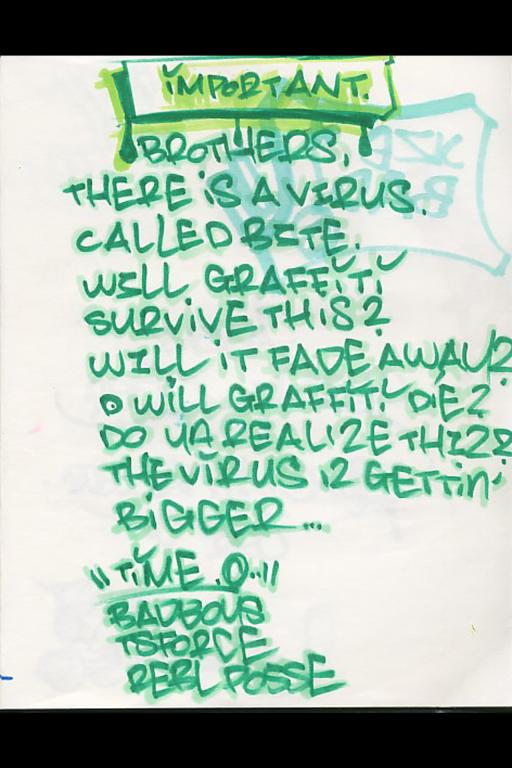 IMPORTANT.
BROTHERS,
THERE IS A VIRUS.
CALLED BITE.
WILL GRAFFITI
SURVIVE THIS?
WILL IT FADE AWAY?
WILL GRAFFITI DIE?
DO YA REALIZE THIZ?
THE VIRUS IZ GETTIN'
BIGGER...
"TIME .O.."
BADBOYS
TSFORCE
REBL POSSE